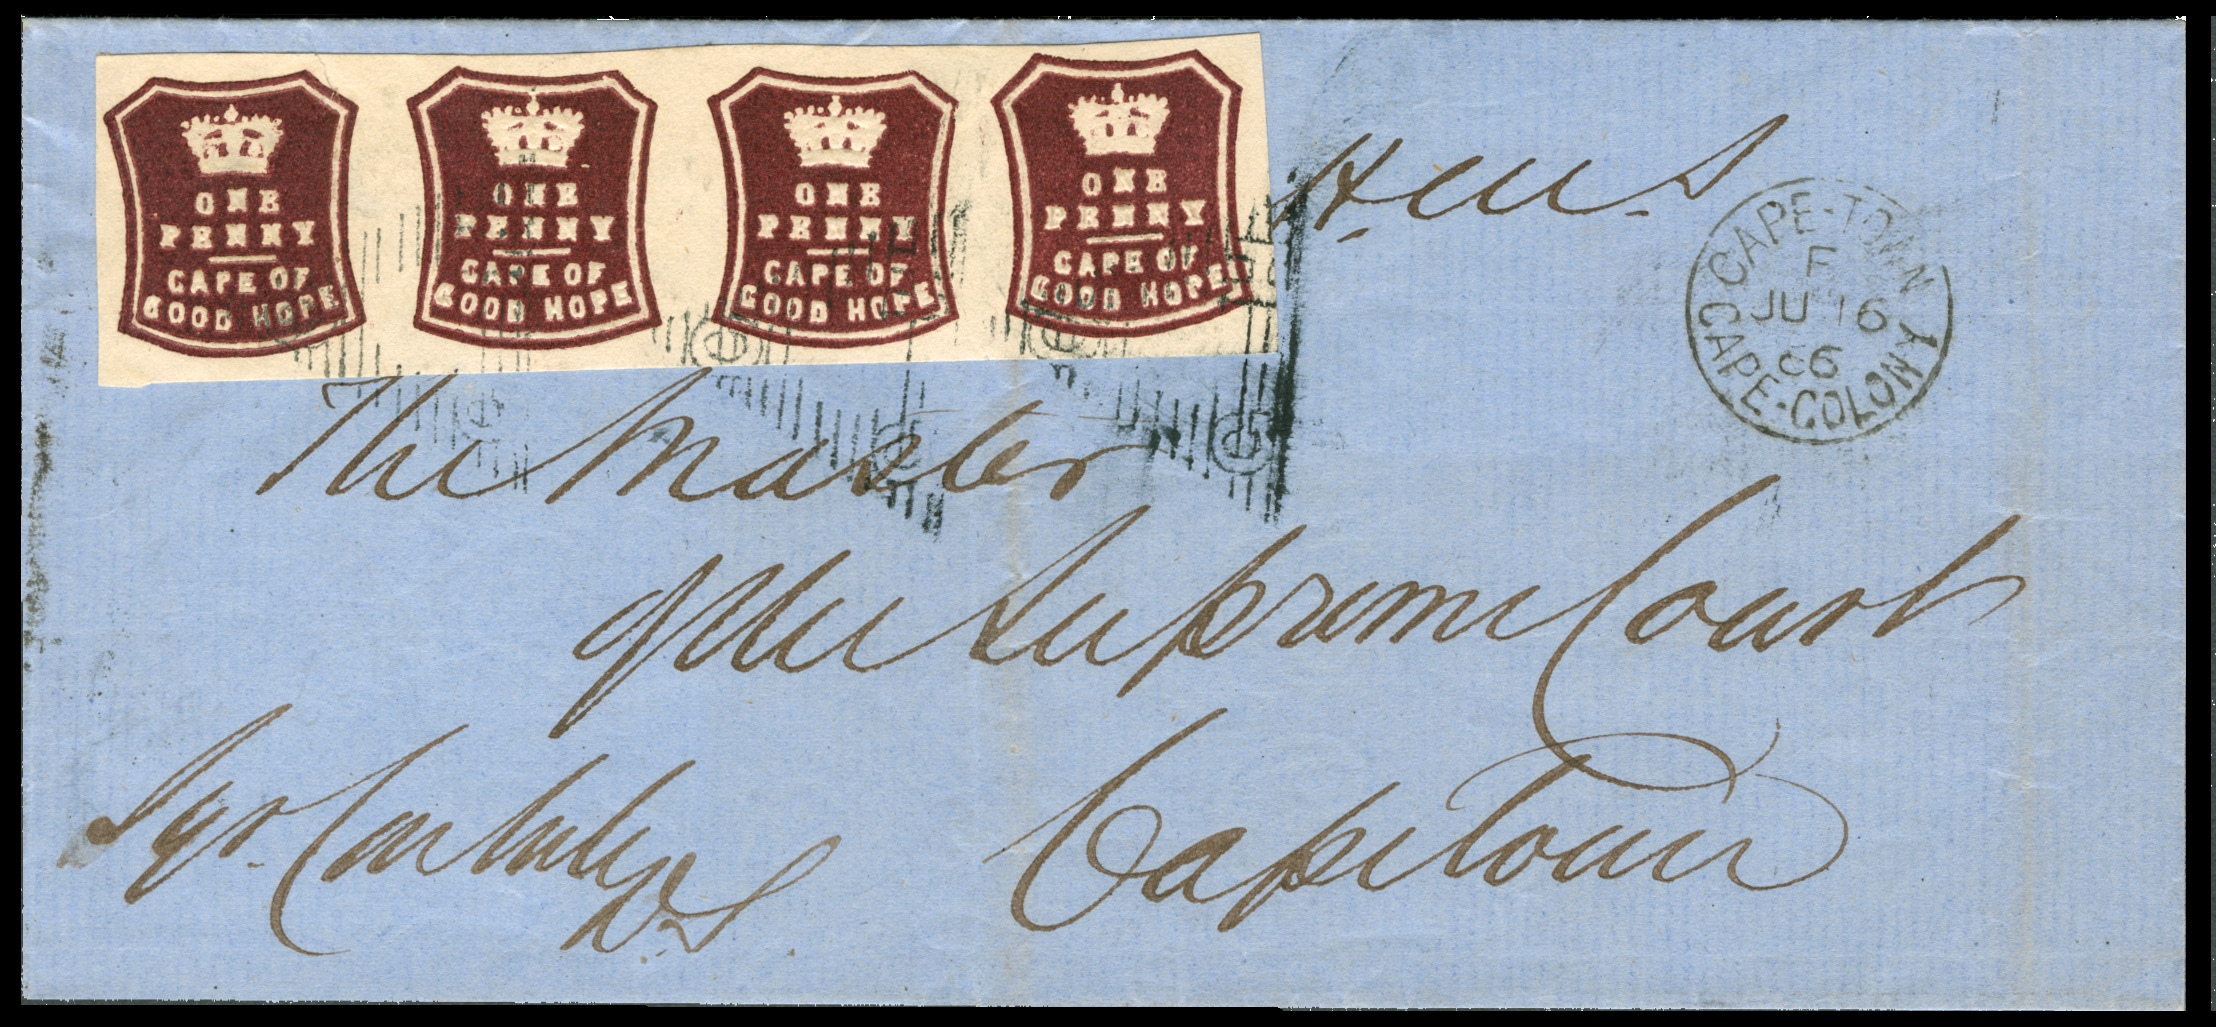 ONE
PENNY
CAPE OF
GOOD HOPE
ONE
PENNY
CAPE OF
GOOD HOPE
ONE
PENNY
CAPE OF
GOOD HOPE
ONE
PENNY
CAPE OF
GOOD HOPE
CAPE-TOWN
F
JU 16
66
CAPE-COLONY
The Master
of the Supreme Court
Cape Town